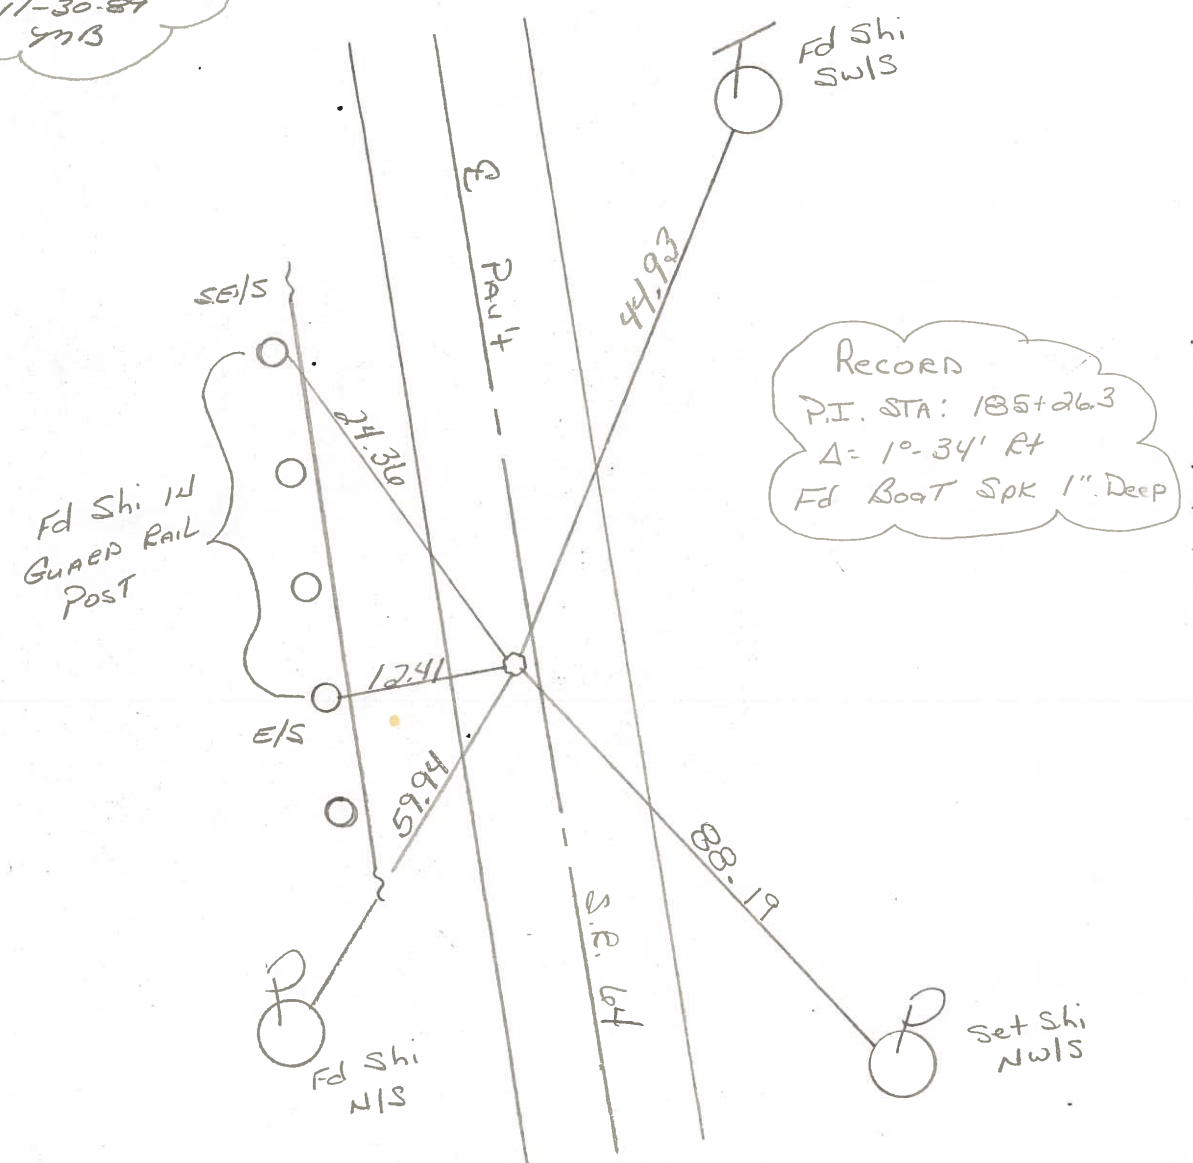 11-30-89
Fd Shi
SW/S
℄ Pav't
44.93
SE/S
24.36
RECORD
P.I. STA: 185+26.3
Δ= 1°-34' Rt
Fd Boat Spk 1" Deep
Fd Shi IN
GUARD RAIL
POST
12.41
E/S
59.94
88.19
S.R. 64
Fd Shi
N/S
Set Shi
NW/S